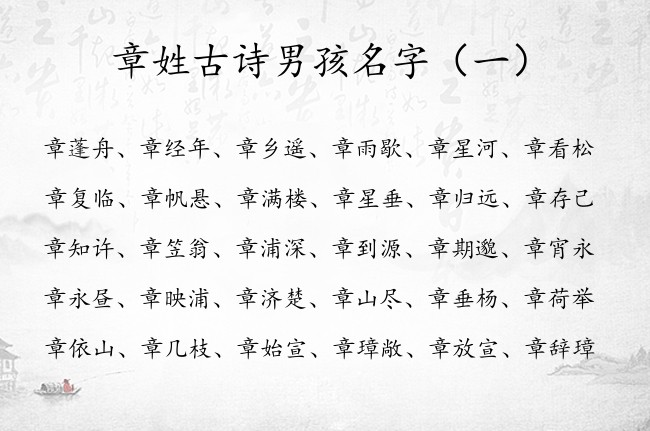 章姓古诗男孩名字（一）
章蓬舟、章经年、章乡遥、章雨歇、章星河、章看松
章复临、章帆悬、章满楼、章星垂、章归远、章存己
章知许、章笠翁、章浦深、章到源、章期邈、章宵永
章永昼、章映浦、章济楚、章山尽、章垂杨、章荷举
章依山、章几枝、章始宣、章璋敞、章放宣、章辞璋